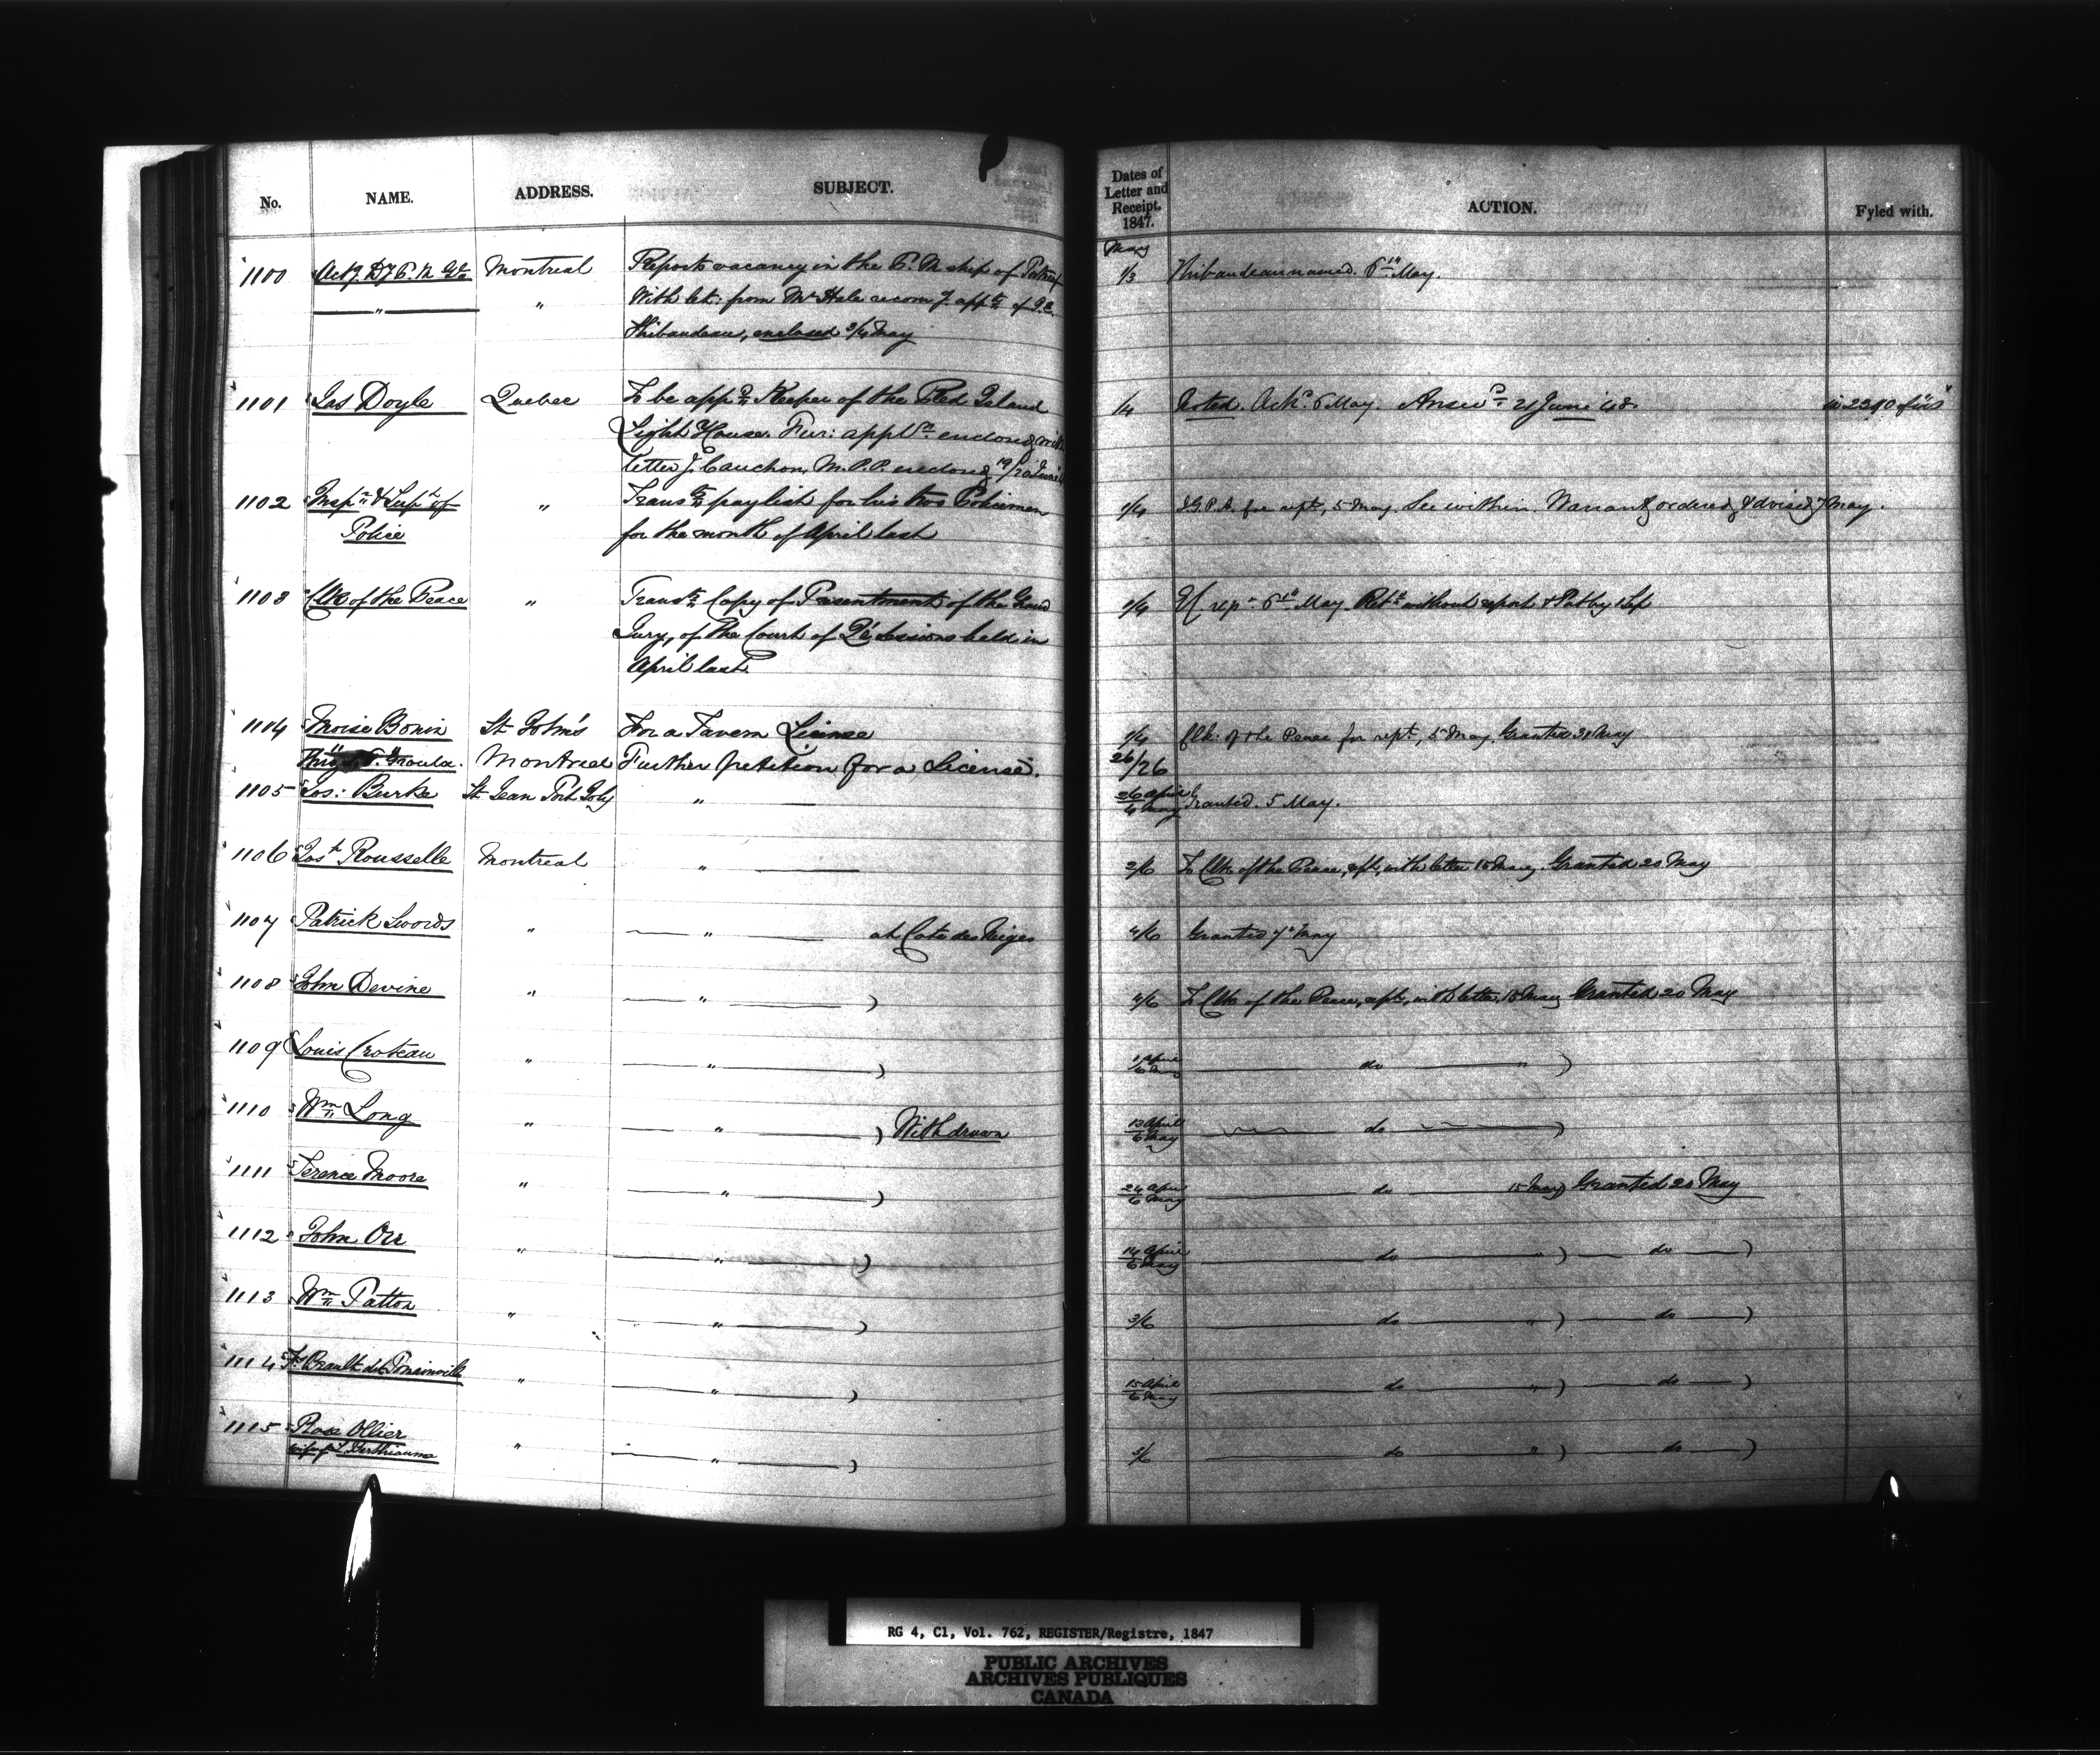 No. NAME. ADDRESS. SUBJECT. Dates of Letter and Receipt. 1847. ACTION. Fyled with.
May
1100 Act.g D.y P. M. Gl. Montreal Reports vacancy in the P. M. ship of 1/3 Thibaudeau named. 6th May.
" " With let: from Mr Hale recom.g app.t of
Thibaudeau, enclosed 3/4 May
1101 Jas Doyle Quebec To be app.d Keeper of the Red Island 1/4 Noted. Ack.d 6 May. Answ.d 21 June '48. in 2390 of '48
Light House. Fur: appl.n enclosed with
letter J. Cauchon, M.P.P. enclosed 19/20 June
1102 Insp.r & Sup.t of " Trans.ts pay list for his two Policemen 1/4 I.G.P.A. for rept, 5 May. See within. Warrant ordered & advised 7 May.
Police for the month of April last
1103 Clk of the Peace " Trans.ts Copy of Presentment of the Grand 1/4 May Ret.d without report
Jury, of the Court of Qr Sessions held in
April last.
1114 Moise Bonin St John's For a Tavern License Clk: of the Peace for rept, 5 May. Granted 31 May
Montreal Further petition for a License. 26/26
1105 Jos: Burke St Jean Port Joly " 26 April/4 May Granted. 5 May.
1106 Jos.h Rousselle Montreal " 3/6 To Clk of the Peace, rept, with letter 15 May. Granted 20 May
1107 Patrick Swords " " at Cote des Neiges 4/6 Granted 7th May
1108 John Devine " " ) 4/6 To Clk of the Peace, rept, with letter, 15 May Granted 20 May
1109 Louis Croteau " " ) 1 April/6 May do " )
1110 Wm Long " " ) Withdrawn 13 April/6 May do )
1111 Terence Moore " " ) 24 April/6 May do 15 May) Granted 20 May
1112 John Orr " " ) 14 April/6 May do " ) do )
1113 Wm Patton " " ) 3/6 do " ) do )
1114 Fs Brault dit Pominville " " ) 15 April/6 May do " ) do )
1115 Rose Ollier " " ) 5/6 do " ) do )
wife of L. Berthiaume
RG 4, C1, Vol. 762, REGISTER/Registre, 1847
PUBLIC ARCHIVES
ARCHIVES PUBLIQUES
CANADA